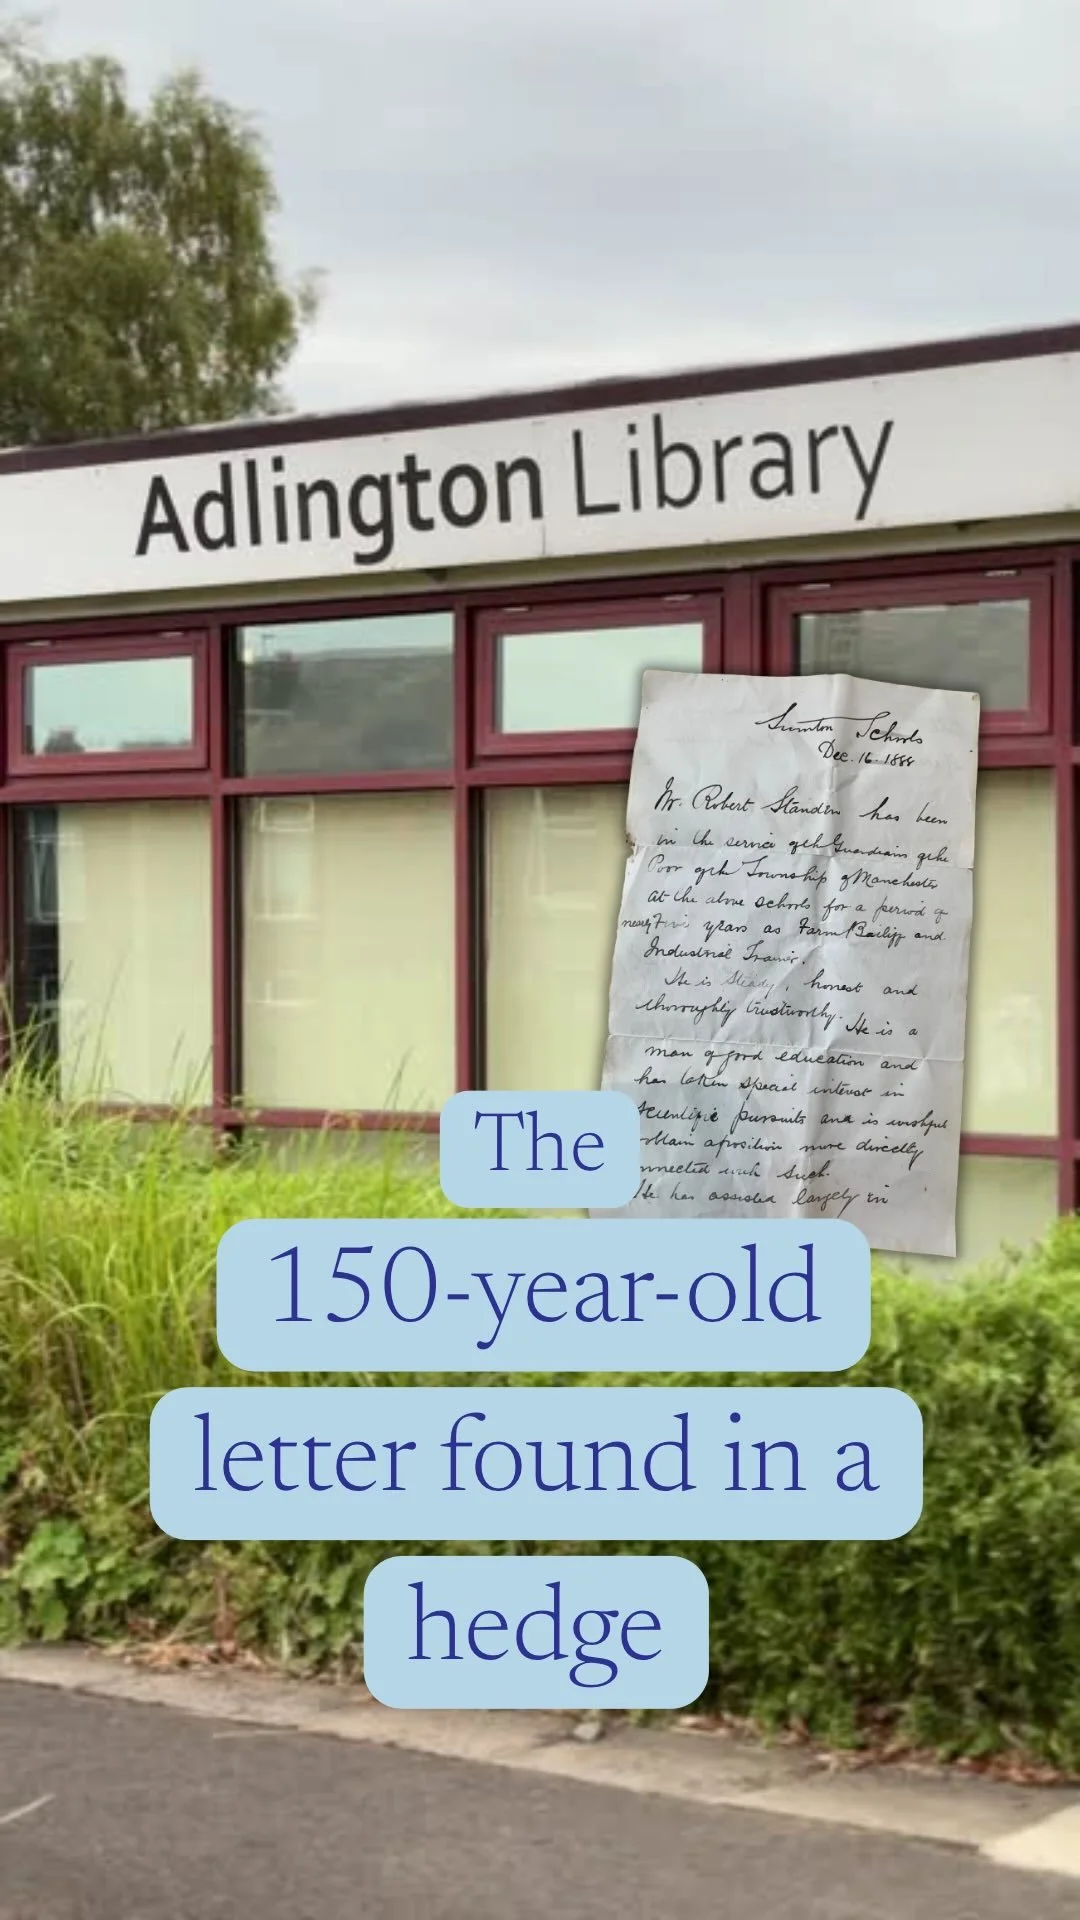 Adlington Library
Swinton Schools
Dec. 16. 1888
Mr. Robert Standen has been
in the service of the Guardians of the
Poor of the Township of Manchester
at the above schools for a period of
nearly Five years as Farm Bailiff and
Industrial Trainer.
He is Steady, honest and
thoroughly trustworthy. He is a
man of good education and
has taken special interest in
scientific pursuits and is wishful
obtain a position more directly
nnected with such.
He has assisted largely in
The
150-year-old
letter found in a
hedge